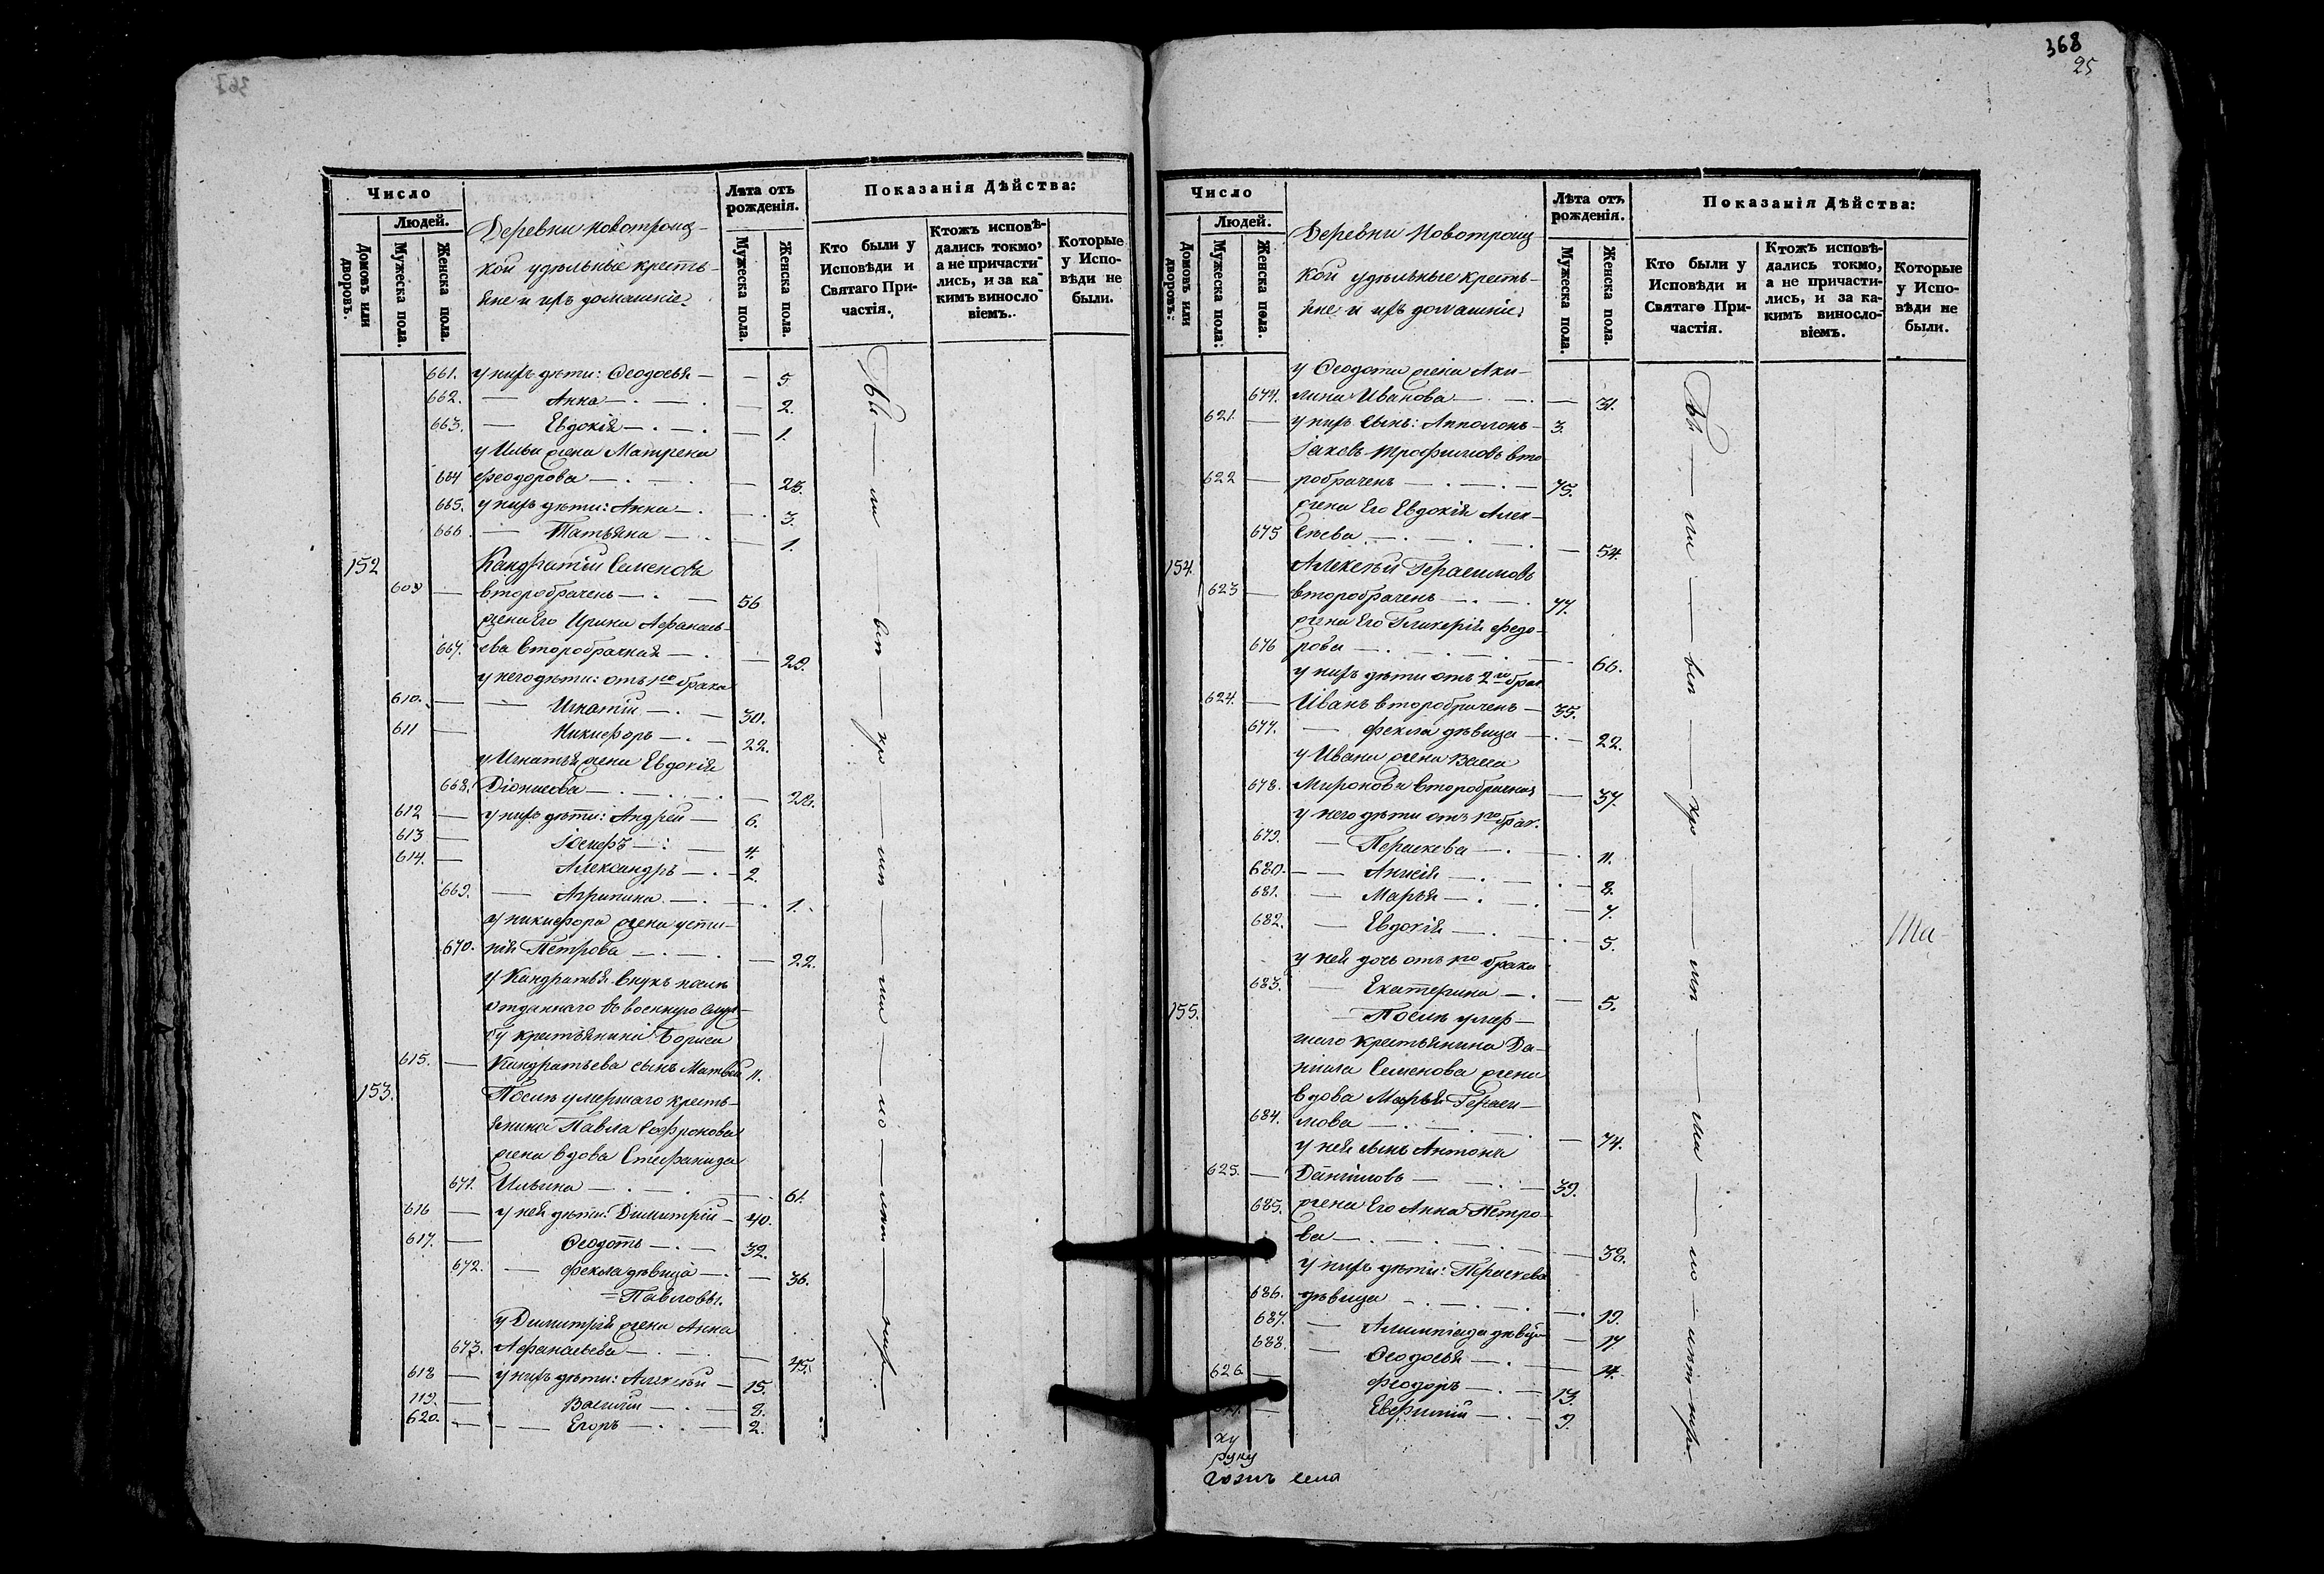 Число
Людей.
Домовъ или дворовъ.
Мужеска пола.
Женска пола.
Деревни Новотроиц-
кой удѣльные кресть-
яне и ихъ домашніе.
Лѣта отъ рожденія.
Мужеска пола.
Женска пола.
Показанія Дѣйства:
Кто были у Исповѣди и Святаго Причастія.
Ктожъ исповѣдались токмо, а не причастились, и за какимъ винословіемъ.
Которые у Исповѣди не были.
661. у нихъ дѣти: Ѳеодосья — — 5
662. — Анна — . — . — 2.
663. — Евдокія — . — . — 1.
у Ильи жена Матрена
664 Феодорова — . — . — 25.
665. у нихъ дѣти: Анна — . — . 3.
666 — Татьяна — . — 1.
152 Кандратій Семеновъ
609 — второбраченъ — . — 56
жена Его Ирина Афанась-
667. ева второбрачная — . — 29.
у него дѣти: отъ 1го брака
610. — — Игнатій — . — 30.
611 — Никифоръ — . — 22.
у Игнатья жена Евдокія
668. Діонисова — . — . — . — 28.
612 — у нихъ дѣти: Андрей — 6.
613 — Іосифъ — . — 4.
614. — Александръ — . — 2.
669. — Агрипина — . — . 1.
у Никифора жена Усти-
670. нія Петрова — . — . — 22.
у Кандратья внукъ послѣ
отданнаго въ военную служ-
бу крестьянина Бориса
615. — Кандратьева сынъ Матвей 11.
153. Послѣ умершаго кресть-
янина Павла Софронова
жена вдова Стефанида
671. Ильина — . — . — 61.
616 — у ней дѣти: Димитрій — 40.
617. — Ѳеодотъ — . — 32.
672. — Фекла дѣвица — . — 36.
= Павловы.
у Димитрія жена Анна
673. Афанасьева — . — . — 45.
618 — у нихъ дѣти: Алексѣй — 15.
119. — Василій — . — 8.
620. — — Егоръ — . — 2.
368
25
Число
Людей.
Домовъ или дворовъ:
Мужеска пола:
Женска пола.
Деревни Новотроиц-
кой удѣльные кресть-
яне и ихъ домашніе.
Лѣта отъ рожденія.
Мужеска пола.
Женска пола.
Показанія Дѣйства:
Кто были у Исповѣди и Святаго Причастія.
Ктожъ исповѣдались токмо, а не причастились, и за какимъ винословіемъ.
Которые у Исповѣди не были.
у Ѳеодота жена Аку-
674. лина Иванова — . — . — 31.
621. — у нихъ сынъ: Апполонъ — 3.
Іаковъ Трофимовъ вто
622 — робраченъ — . — . — 75.
жена Его Евдокія Алек-
675 сѣева — . — . — 54.
154. Алексѣй Герасимовъ
623 — второбраченъ — . — . 77.
жена Его Гликерія Федо-
676 рова — . — . — . — 66.
у нихъ дѣти отъ 2го брак.
624. — Иванъ второбраченъ — 35.
677. — Фекла дѣвица — . — 22.
у Ивана жена Васса
678. Миронова второбрачная — 37.
у него дѣти отъ 1го брак.
679. — Пераскева — . — . 11.
680. — — Анисія — . — . — 8.
681. — Марья — . — . — 7.
682. — Евдокія — . — . — 5.
у ней дочь отъ 1го брака
683. — Екатерина — . — 5.
155. — Послѣ умер-
шаго крестьянина Да-
ніила Семенова жена
вдова Марья Гераси-
684. мова — . — . — 74.
у ней сынъ Антонъ
625. — Данииловъ — . — 39.
685. жена Его Анна Петро-
ва — . — . — . — 38.
у нихъ дѣти: Праскева
686. дѣвица — . — . — . 19.
687. — Алимпіада дѣвиц. — 17
688. — Ѳеодосья — . — 14.
626. — Феодоръ — . — 13.
— Евфимій — . — 9.